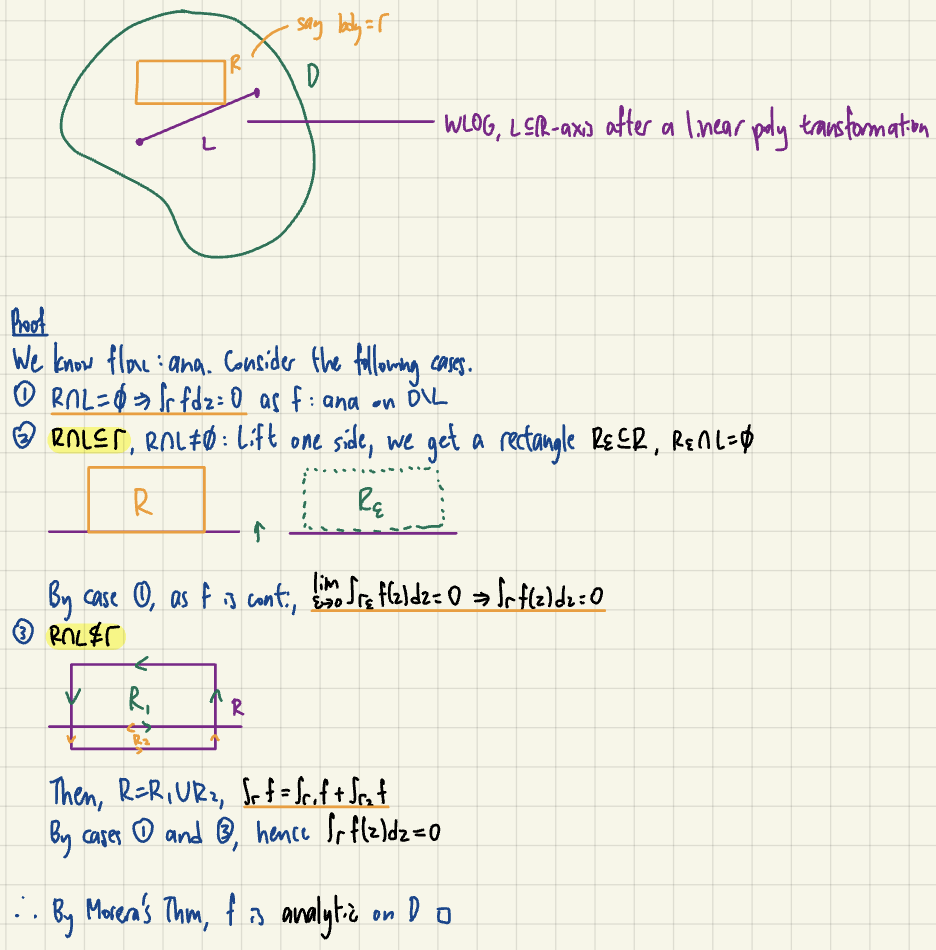 say bdy = Γ
R
D
L
WLOG, L⊆ℝ-axis after a linear poly transformation
Proof
We know f|D\L : ana. Consider the following cases.
① R∩L=∅ ⇒ ∫Γ fdz=0 as f: ana on D\L
② R∩L⊆Γ, R∩L≠∅ : Lift one side, we get a rectangle Rε⊆R, Rε∩L=∅
R
Rε
By case ①, as f is cont:, lim ε→0 ∫Γε f(z)dz=0 ⇒ ∫Γ f(z)dz=0
③ R∩L⊈Γ
R₁
R
R₂
Then, R=R₁∪R₂, ∫Γ f = ∫Γ₁ f + ∫Γ₂ f
By cases ① and ③, hence ∫Γ f(z)dz=0
∴ By Morera's Thm, f is analytic on D □